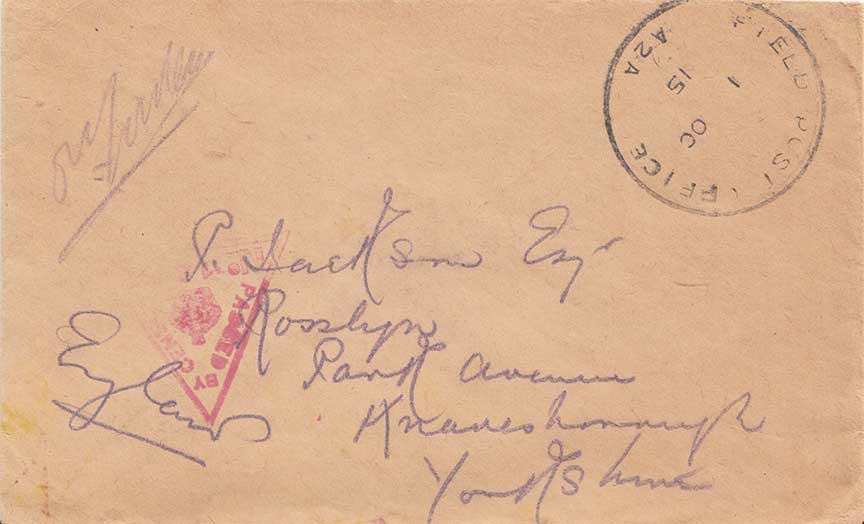 FIELD POST OFFICE
A2A
1
15 OC
P. Jackson Esq
Rosslyn
Park Avenue
Knaresborough
Yorkshire
England
PASSED BY CEN
No 11